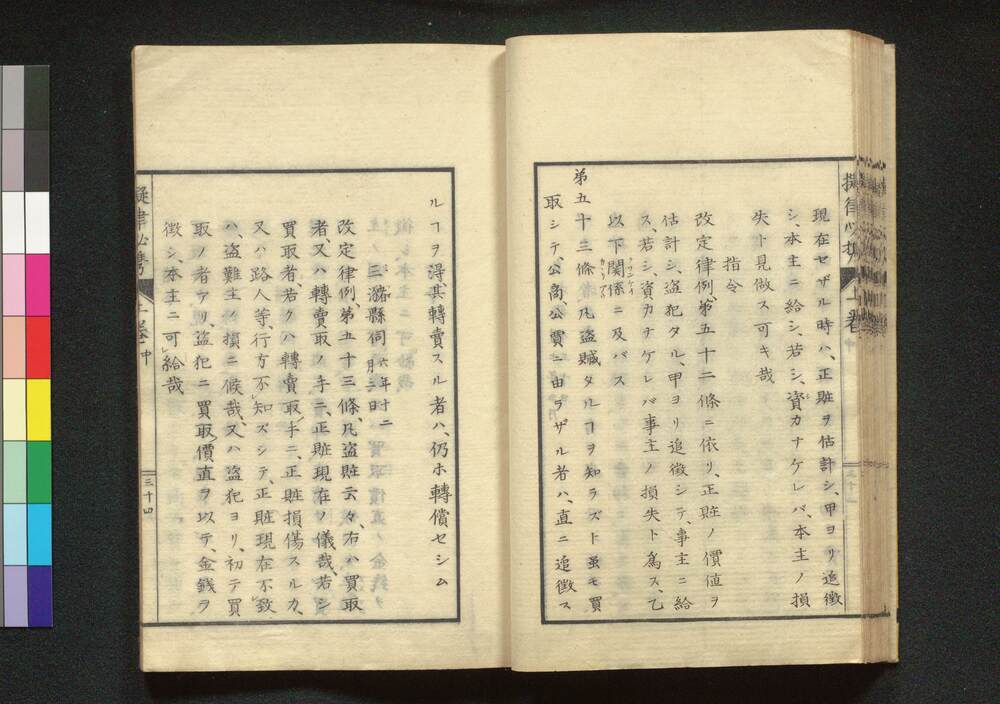 現在セザル時ハ、正賍ヲ估計シ、甲ヨリ追徴
シ、本主ニ給シ、若シ、資カナケレバ、本主ノ損
失ト見做ス可キ哉
指令
改定律例、第五十二條ニ依リ、正賍ノ價値ヲ
估計シ、盗犯タル甲ヨリ追徴シテ、事主ニ給
ス、若シ、資カナケレバ事主ノ損失ト為ス、乙
以下關係ニ及バス
第五十三條、凡盗贓タルヿヲ知ラズト虽モ買
取シテ、公商、公賈ニ由ラザル者ハ、直ニ追徴ス
ルヿヲ得、其轉賣スル者ハ、仍ホ轉償セシム
三潴縣伺 六年十二月二日
改定律例、第五十三條、凡盗賍云々、右ハ買取
者、又ハ轉賣取ノ手ニ、正賍現在ノ儀哉、若シ
買取者、若クハ轉賣取ノ手ニ、正賍損傷スルカ、
又ハ路人等、行方不知ズシテ、正賍現在不致
ハ、盗難主ノ損ニ候哉、又ハ盗犯ヨリ、初テ買
取ノ者アリ、盗犯ニ買取價直ヲ以テ、金錢ヲ
徴シ、本主ニ可給哉
擬律必携
上卷
中
三十四